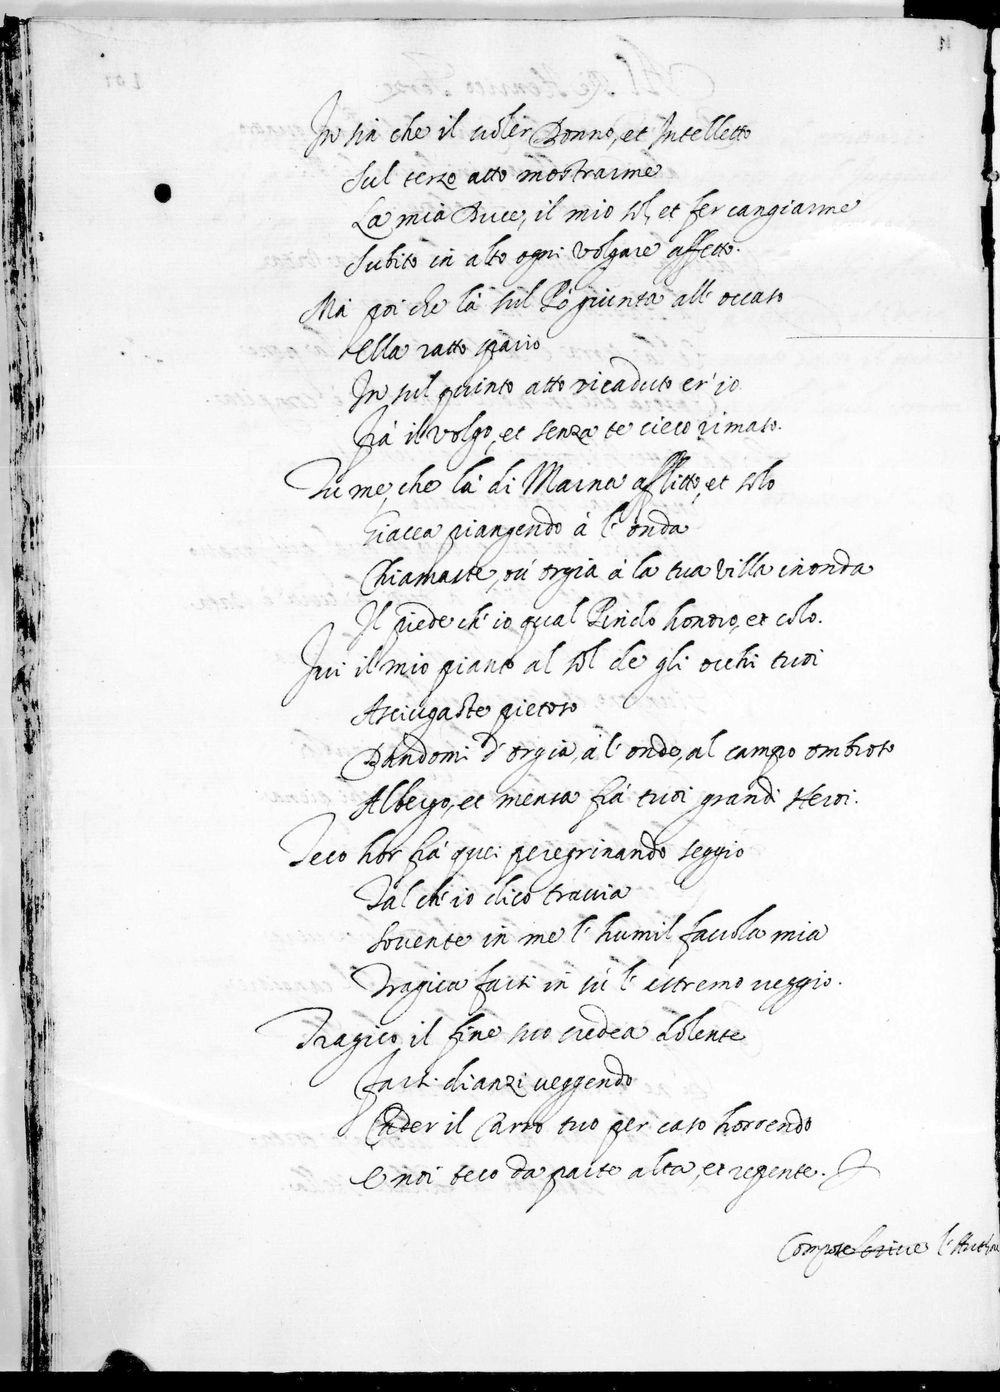 In sin che il voler Donno, et Intelletto
Sul terzo atto mostrarme
La mia Duce, il mio sol, et fer cangiarme
Subito in alto ogni volgare affetto.
Ma poi che là sul Pò giunta all' occaso
Ella ratto sparìo
In sul quinto atto ricaduto er' io
Frà il volgo, et senza te cieco rimaso.
Tu me, che là di Marna afflitto, et solo
Giacea piangendo à l' onda
Chiamaste, où orgia à la tua villa inonda
Il piede ch' io qual Pindo honoro, et colo.
Ivi il mio pianto al sol de gli occhi tuoi
Asciugaste pietoso
Dandomi d' orgia, à l' onde, al campo ombroso
Albergo, et mensa frà tuoi grandi Heroi.
Teco hor frà quei peregrinando seggio
Tal ch' io dico travia
Sovente in me l' humil favola mia
Tragica farsi in sù l' estremo veggio.
Tragico il fine suo credea dolente
Farsi dianzi veggendo
Cader il Carro tuo per caso horrendo
E noi teco da parte alta, et repente.
Compose l'